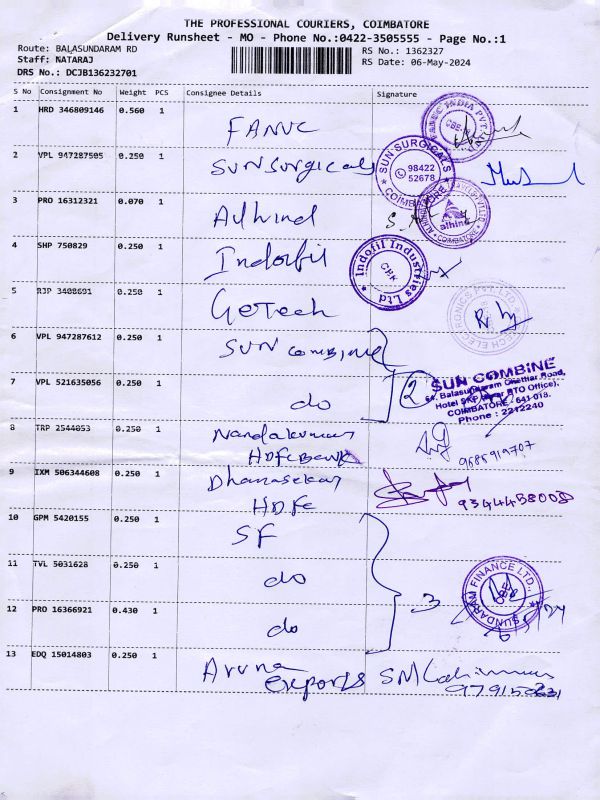 THE PROFESSIONAL COURIERS, COIMBATORE
Delivery Runsheet - MO - Phone No.:0422-3505555 - Page No.:1
Route: BALASUNDARAM RD
RS No.: 1362327
Staff: NATARAJ
RS Date: 06-May-2024
DRS No.: DCJB136232701
S No Consignment No Weight PCS Consignee Details Signature
1 HRD 346809146 0.560 1 FANUC
2 VPL 947287505 0.250 1 SUNSURGICALS
SUN-SURGICALS
98422
52678
COIMBATORE
3 PRO 16312321 0.070 1 Alhind
alhind
COIMBATORE
4 SHP 750829 0.250 1 Indofil
Indofil Industries Ltd
CBE
5 RJP 3408691 0.250 1 GeTech
6 VPL 947287612 0.250 1 SUN combine
7 VPL 521635056 0.250 1 do 2
SUN COMBINE
64, Balasundaram Chettiar Road,
Hotel SKP (Near RTO Office),
COIMBATORE - 641 018.
Phone : 2212240
8 TRP 2544053 0.250 1 Nandakumar
HDFC Bank
9685919707
9 IXM 506344608 0.250 1 Dhanasekar
HDFC
9344458008
10 GPM 5420155 0.250 1 SF
11 TVL 5031628 0.250 1 do
12 PRO 16366921 0.430 1 do 3
SUNDARAM FINANCE LTD.,
13 EDQ 15014803 0.250 1 Aruna
exports